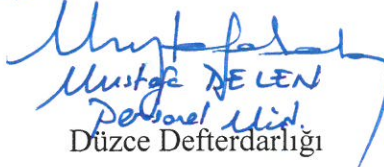 Mustafa DELEN
Personel Müd.
Düzce Defterdarlığı